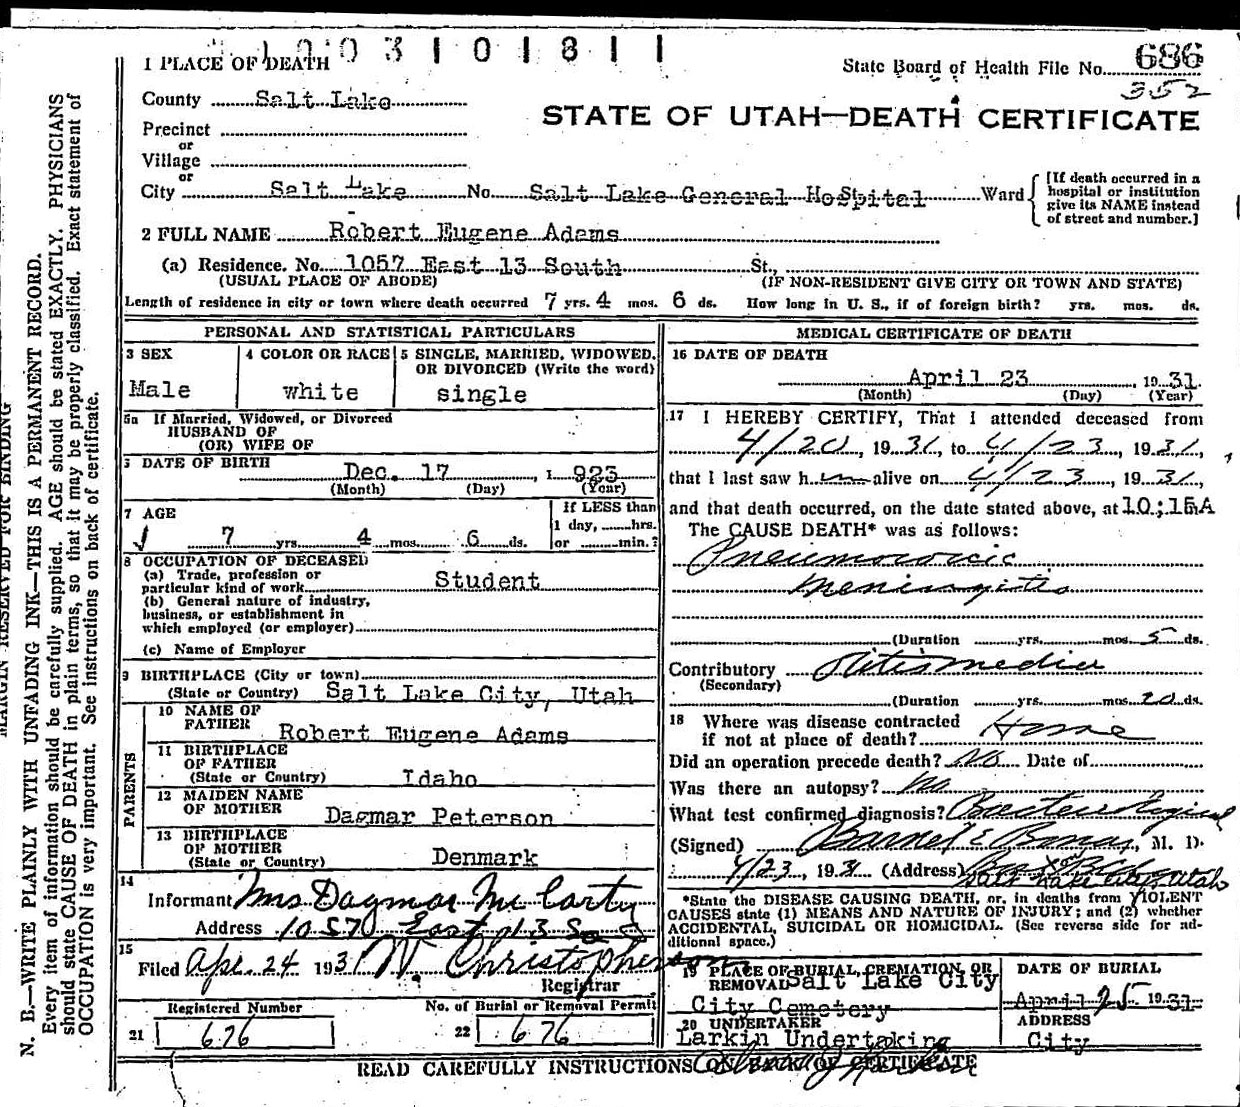 1003101811
1 PLACE OF DEATH
State Board of Health File No. 686
352
County Salt Lake
STATE OF UTAH—DEATH CERTIFICATE
Precinct
or
Village
or
City Salt Lake No. Salt Lake General Hospital Ward
[If death occurred in a
hospital or institution
give its NAME instead
of street and number.]
2 FULL NAME Robert Eugene Adams
(a) Residence. No. 1057 East 13 South St.,
(USUAL PLACE OF ABODE) (IF NON-RESIDENT GIVE CITY OR TOWN AND STATE)
Length of residence in city or town where death occurred 7 yrs. 4 mos. 6 ds. How long in U. S., if of foreign birth? yrs. mos. ds.
PERSONAL AND STATISTICAL PARTICULARS
3 SEX
Male
4 COLOR OR RACE
white
5 SINGLE, MARRIED, WIDOWED,
OR DIVORCED (Write the word)
single
5a If Married, Widowed, or Divorced
HUSBAND OF
(OR) WIFE OF
DATE OF BIRTH
Dec. 17, 1 923
(Month) (Day) (Year)
7 AGE
7 yrs. 4 mos. 6 ds.
If LESS than
1 day, hrs.
or min.?
8 OCCUPATION OF DECEASED
(a) Trade, profession or
particular kind of work Student
(b) General nature of industry,
business, or establishment in
which employed (or employer)
(c) Name of Employer
9 BIRTHPLACE (City or town)
(State or Country) Salt Lake City, Utah
PARENTS
10 NAME OF
FATHER Robert Eugene Adams
11 BIRTHPLACE
OF FATHER
(State or Country) Idaho
12 MAIDEN NAME
OF MOTHER Dagmar Peterson
13 BIRTHPLACE
OF MOTHER
(State or Country) Denmark
14
Informant Mrs Dagmar McCarty
Address 1057 East 13 So
15
Filed Apr. 24 1931 W. Christopherson
Registrar
Registered Number No. of Burial or Removal Permit
21 676 22 676
MEDICAL CERTIFICATE OF DEATH
16 DATE OF DEATH
April 23, 1931.
(Month) (Day) (Year)
17 I HEREBY CERTIFY, That I attended deceased from
4/20, 1931, to 4/23, 1931,
that I last saw h im alive on 4/23, 1931,
and that death occurred, on the date stated above, at 10:15A
The CAUSE DEATH* was as follows:
Pneumococcic
meningitis
(Duration yrs. mos. 5 ds.
Contributory Otitis media
(Secondary)
(Duration yrs. mos. 20 ds.
18 Where was disease contracted
if not at place of death? Home
Did an operation precede death? No Date of
Was there an autopsy? no
What test confirmed diagnosis? Bacteriological
(Signed) M. D.
4/23, 1931 (Address)
Salt Lake City, Utah
*State the DISEASE CAUSING DEATH, or, in deaths from VIOLENT
CAUSES state (1) MEANS AND NATURE OF INJURY; and (2) whether
ACCIDENTAL, SUICIDAL OR HOMICIDAL. (See reverse side for ad-
ditional space.)
19 PLACE OF BURIAL, CREMATION, OR
REMOVAL Salt Lake City
City Cemetery
DATE OF BURIAL
April 25 1931
20 UNDERTAKER
Larkin Undertaking
ADDRESS
City
READ CAREFULLY INSTRUCTIONS ON BACK OF CERTIFICATE
MARGIN RESERVED FOR BINDING
N. B.—WRITE PLAINLY WITH UNFADING INK—THIS IS A PERMANENT RECORD.
Every item of information should be carefully supplied. AGE should be stated EXACTLY. PHYSICIANS
should state CAUSE OF DEATH in plain terms, so that it may be properly classified. Exact statement of
OCCUPATION is very important. See instructions on back of certificate.